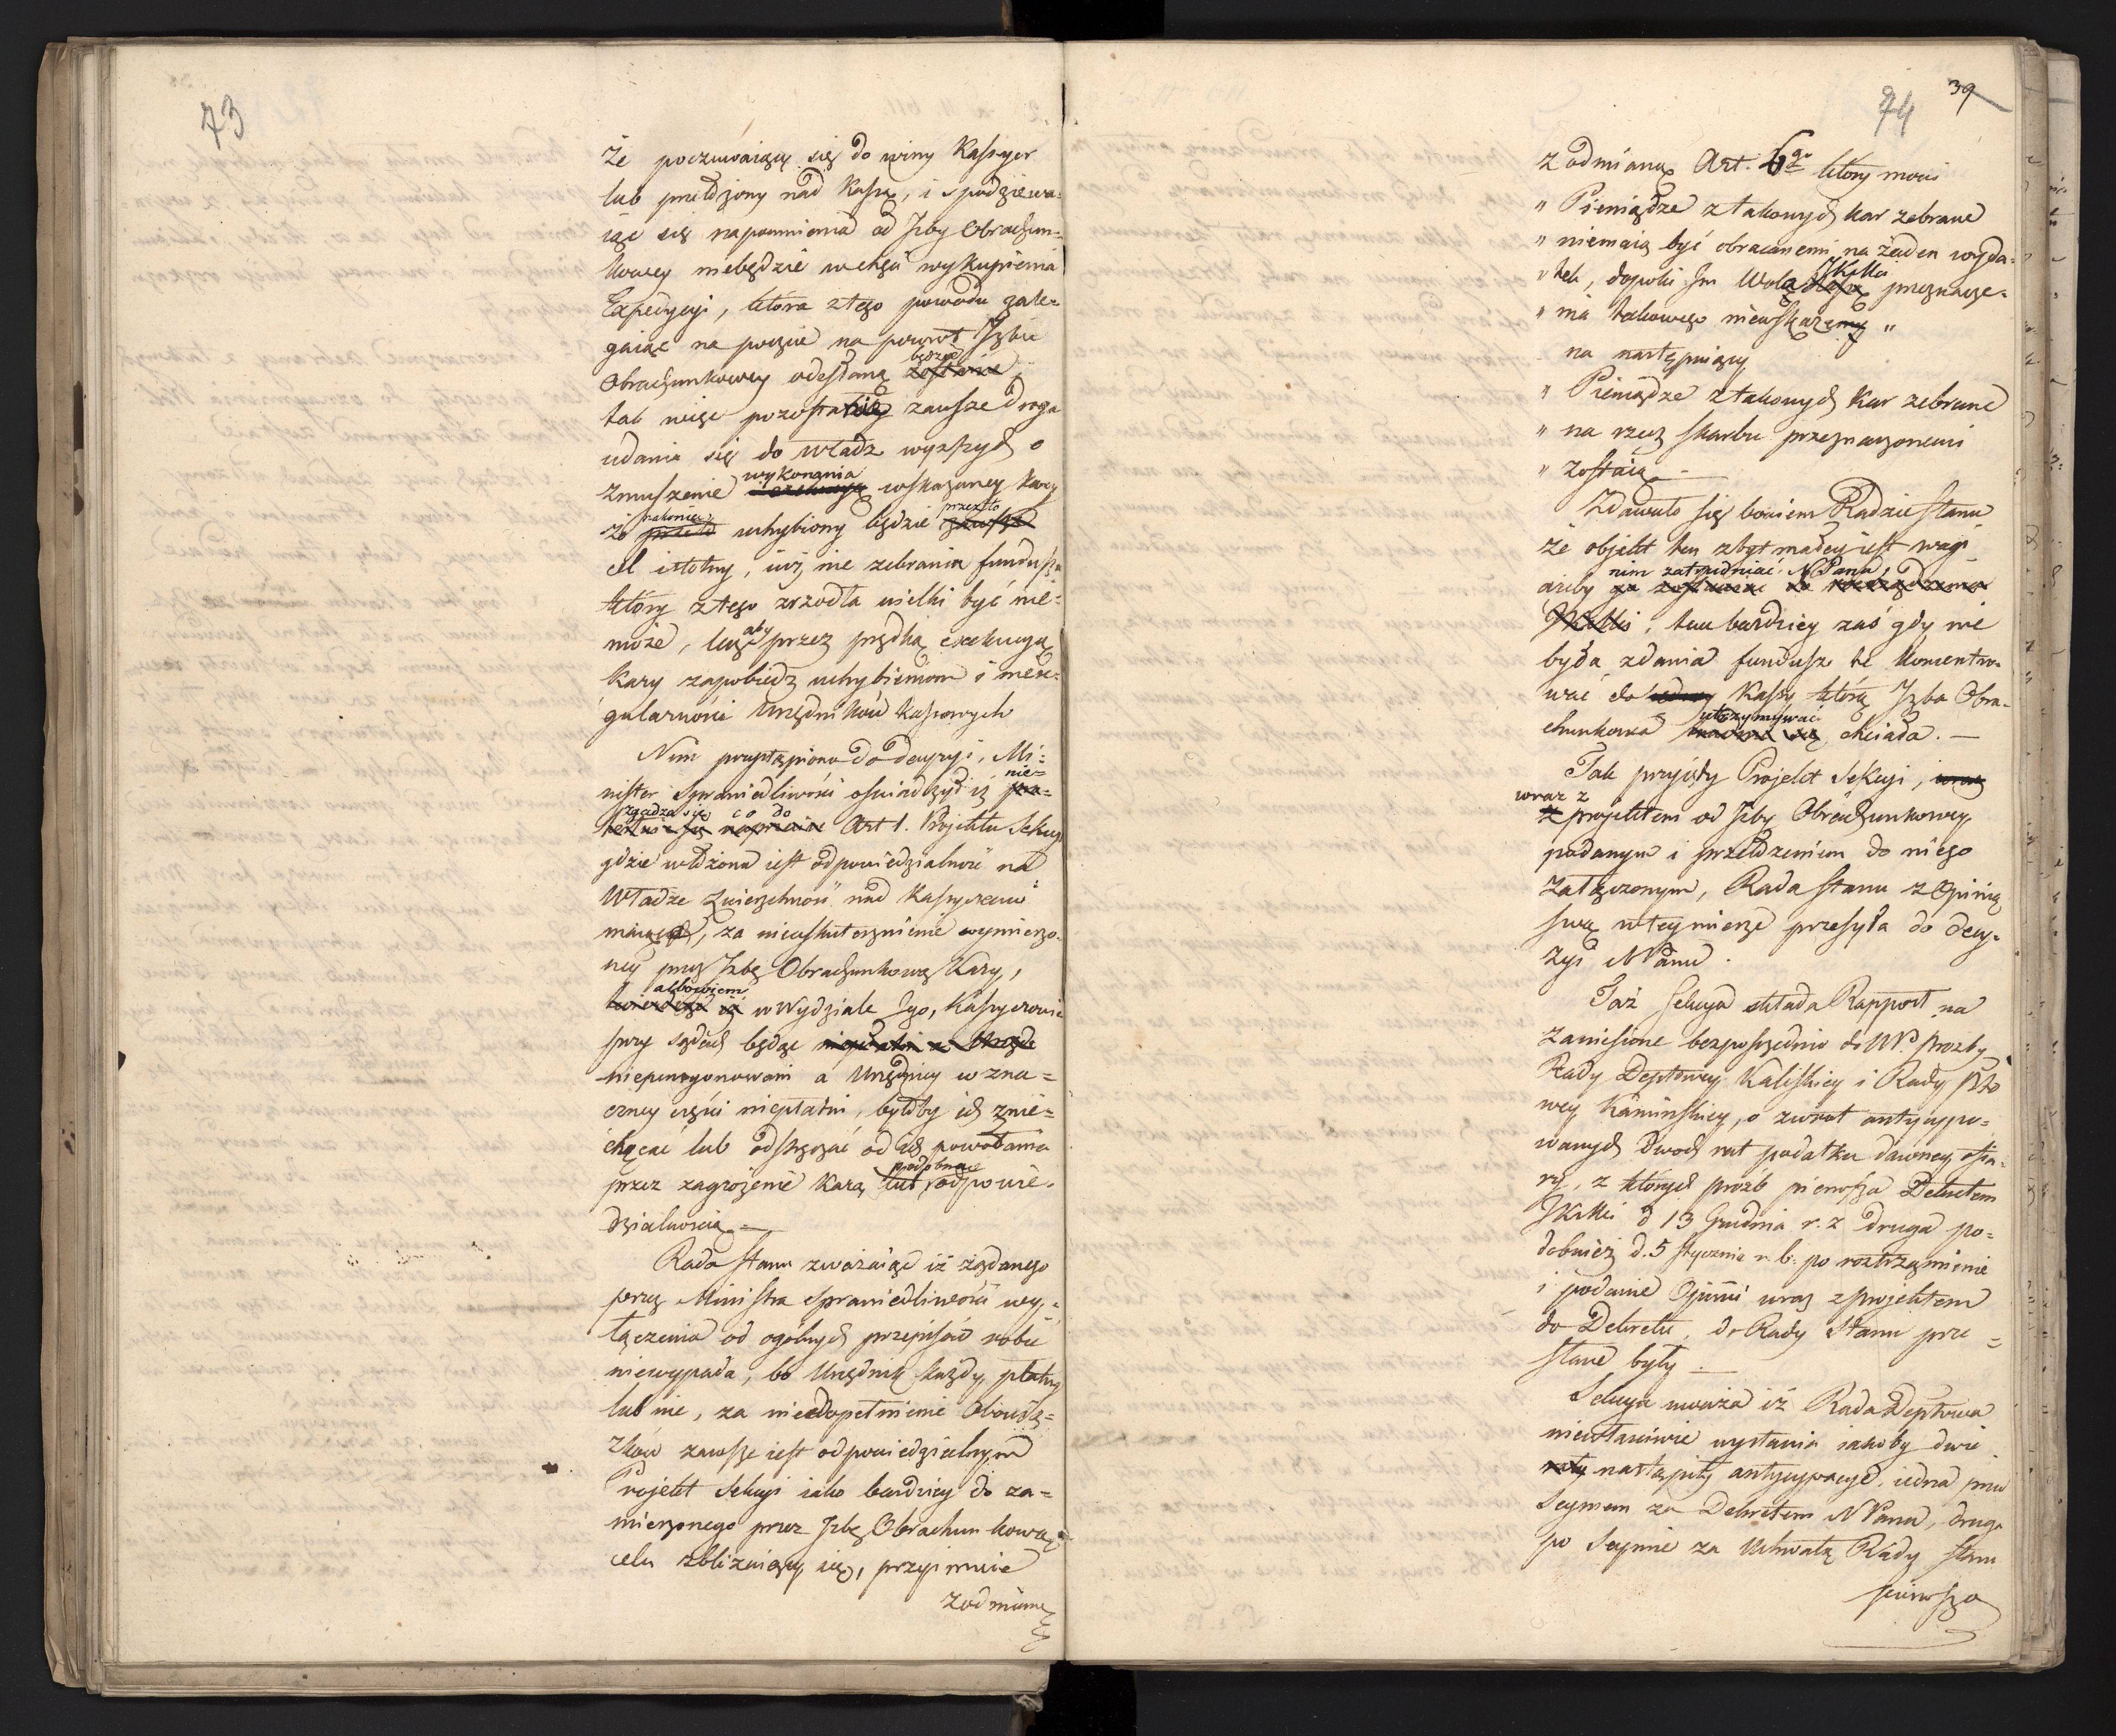 73
że poczuwaiący się do winy Kassyer
lub przełożony nad Kassą, i spodziewa-
iąc się napomnienia od Izby Obrachun=
kowey niebędzie w chęci wykupienia
Expedycyi, która z tego powodu zale=
gaiąc na poczcie na powrót Izbie
będzie
Obrachunkowey odesłaną zostanie
tak więc pozostanie zawsze droga
udania się do władz wyższych o
wykonania
zmuszenie wskazaney kary
nakoniec przezto
że uchybiony będzie
cel istotny, iuż nie zebrania funduszu
który z tego zrzodła wielki być nie=
aby
może, lecz przez prędką exekucyą
kary zapobiedz uchybieniom i niere=
gularności Urzędników kassowych
Nim przystąpiono do decyzyi, Mi=
nie=
nister Sprawiedliwości oświadczył iż
zgadza się co do
Art 1. Projektu Sekcyi
gdzie włożona iest odpowiedzialność na
Władze Zwierzchność nad Kassyerami
maiące, za nieuskutecznienie wymierzo-
ney przez Izbę Obrachunkową Kary,
albowiem
w Wydziale Jego, Kassyerowie
przy sądach będąc
niepensyonowani a Urzędnicy w zna=
czney części niepłatni, byłoby ich znie=
chęcać lub odstręczać od ich powołania
podobnąż
przez zagrożenie karą lub odpowie-
dzialnością. —
Rada Stanu zważaiąc iż żądanego
przez Ministra Sprawiedliwości wy=
łączenia od ogólnych przepisów robić
niewypada, bo Urzędnik każdy płatny
lub nie, za niedopełnienie Obowią=
zków zawsze iest odpowiedzialnym
Projekt Sekcyi iako bardziey do za=
mierzonego przez Izbę Obrachunkową
celu zbliżaiący się, przyimuie
z odmianą
74
39
z odmianą Art. 6go który mówi
" Pieniądze z takowych kar zebrane
" niemaią być obracanemi na żaden wyda=
JKMci
" tek, dopóki Im Wolą przeznacze-
" nia takowego niewskażemy "
na następuiący
" Pieniądze z takowych kar zebrane
" na rzecz skarbu przeznaczonemi
" zostaią. —
Zdawało się bowiem Radzie Stanu
że objekt ten zbyt małey iest wagi
nim zatrudniać NPana
ażeby
, tem bardziey zaś gdy nie
była zdania fundusz te koncentro-
wać do Kassy którą Izba Obra-
utrzymywać
chunkowa chciała. —
Tak przyięty Projekt Sekcyi,
wraz z
projektem od Izby Obrachunkowey
podanym i przełożeniem do niego
załączonym, Rada Stanu z Opinią
swą w tey mierze przesyła do decy-
zyi NPana.
Taż Sekcya składa Rapport na
zaniesione bezpośrednio do NP. prozby
Rady Deptowey Kaliskiey i Rady Ptto
wey Kaminskiey, o zwrot antycypo=
wanych dwoch rat podatku dawney ofia-
ry, z których próźb pierwsza Dekretem
JKMci d 13 Grudnia r. z druga po=
dobnież d. 5 Stycznia r. b. po roztrząśnienie
i podanie Opinii wraz z projektem
do Dekretu, do Rady Stanu prze=
słane były. —
Sekcya uważa iż Rada Deptowa
niewłaściwie wystawia iakoby dwie
nastąpiły antycypacye, iedna przed
Seymem za Dekretem NPana, druga
po Seymie za Uchwałą Rady Stanu
pierwsza